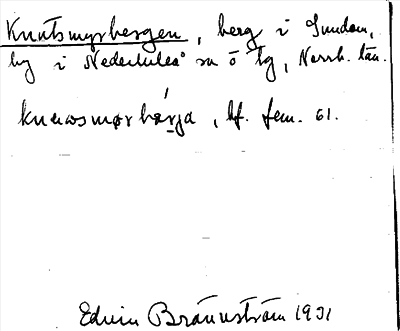 Knutsmyrbergen, berg i Sundom,
by i Nederluleå sn o tg, Norrb. län.
bf. fem. 61.
Edvin Brännström 1931